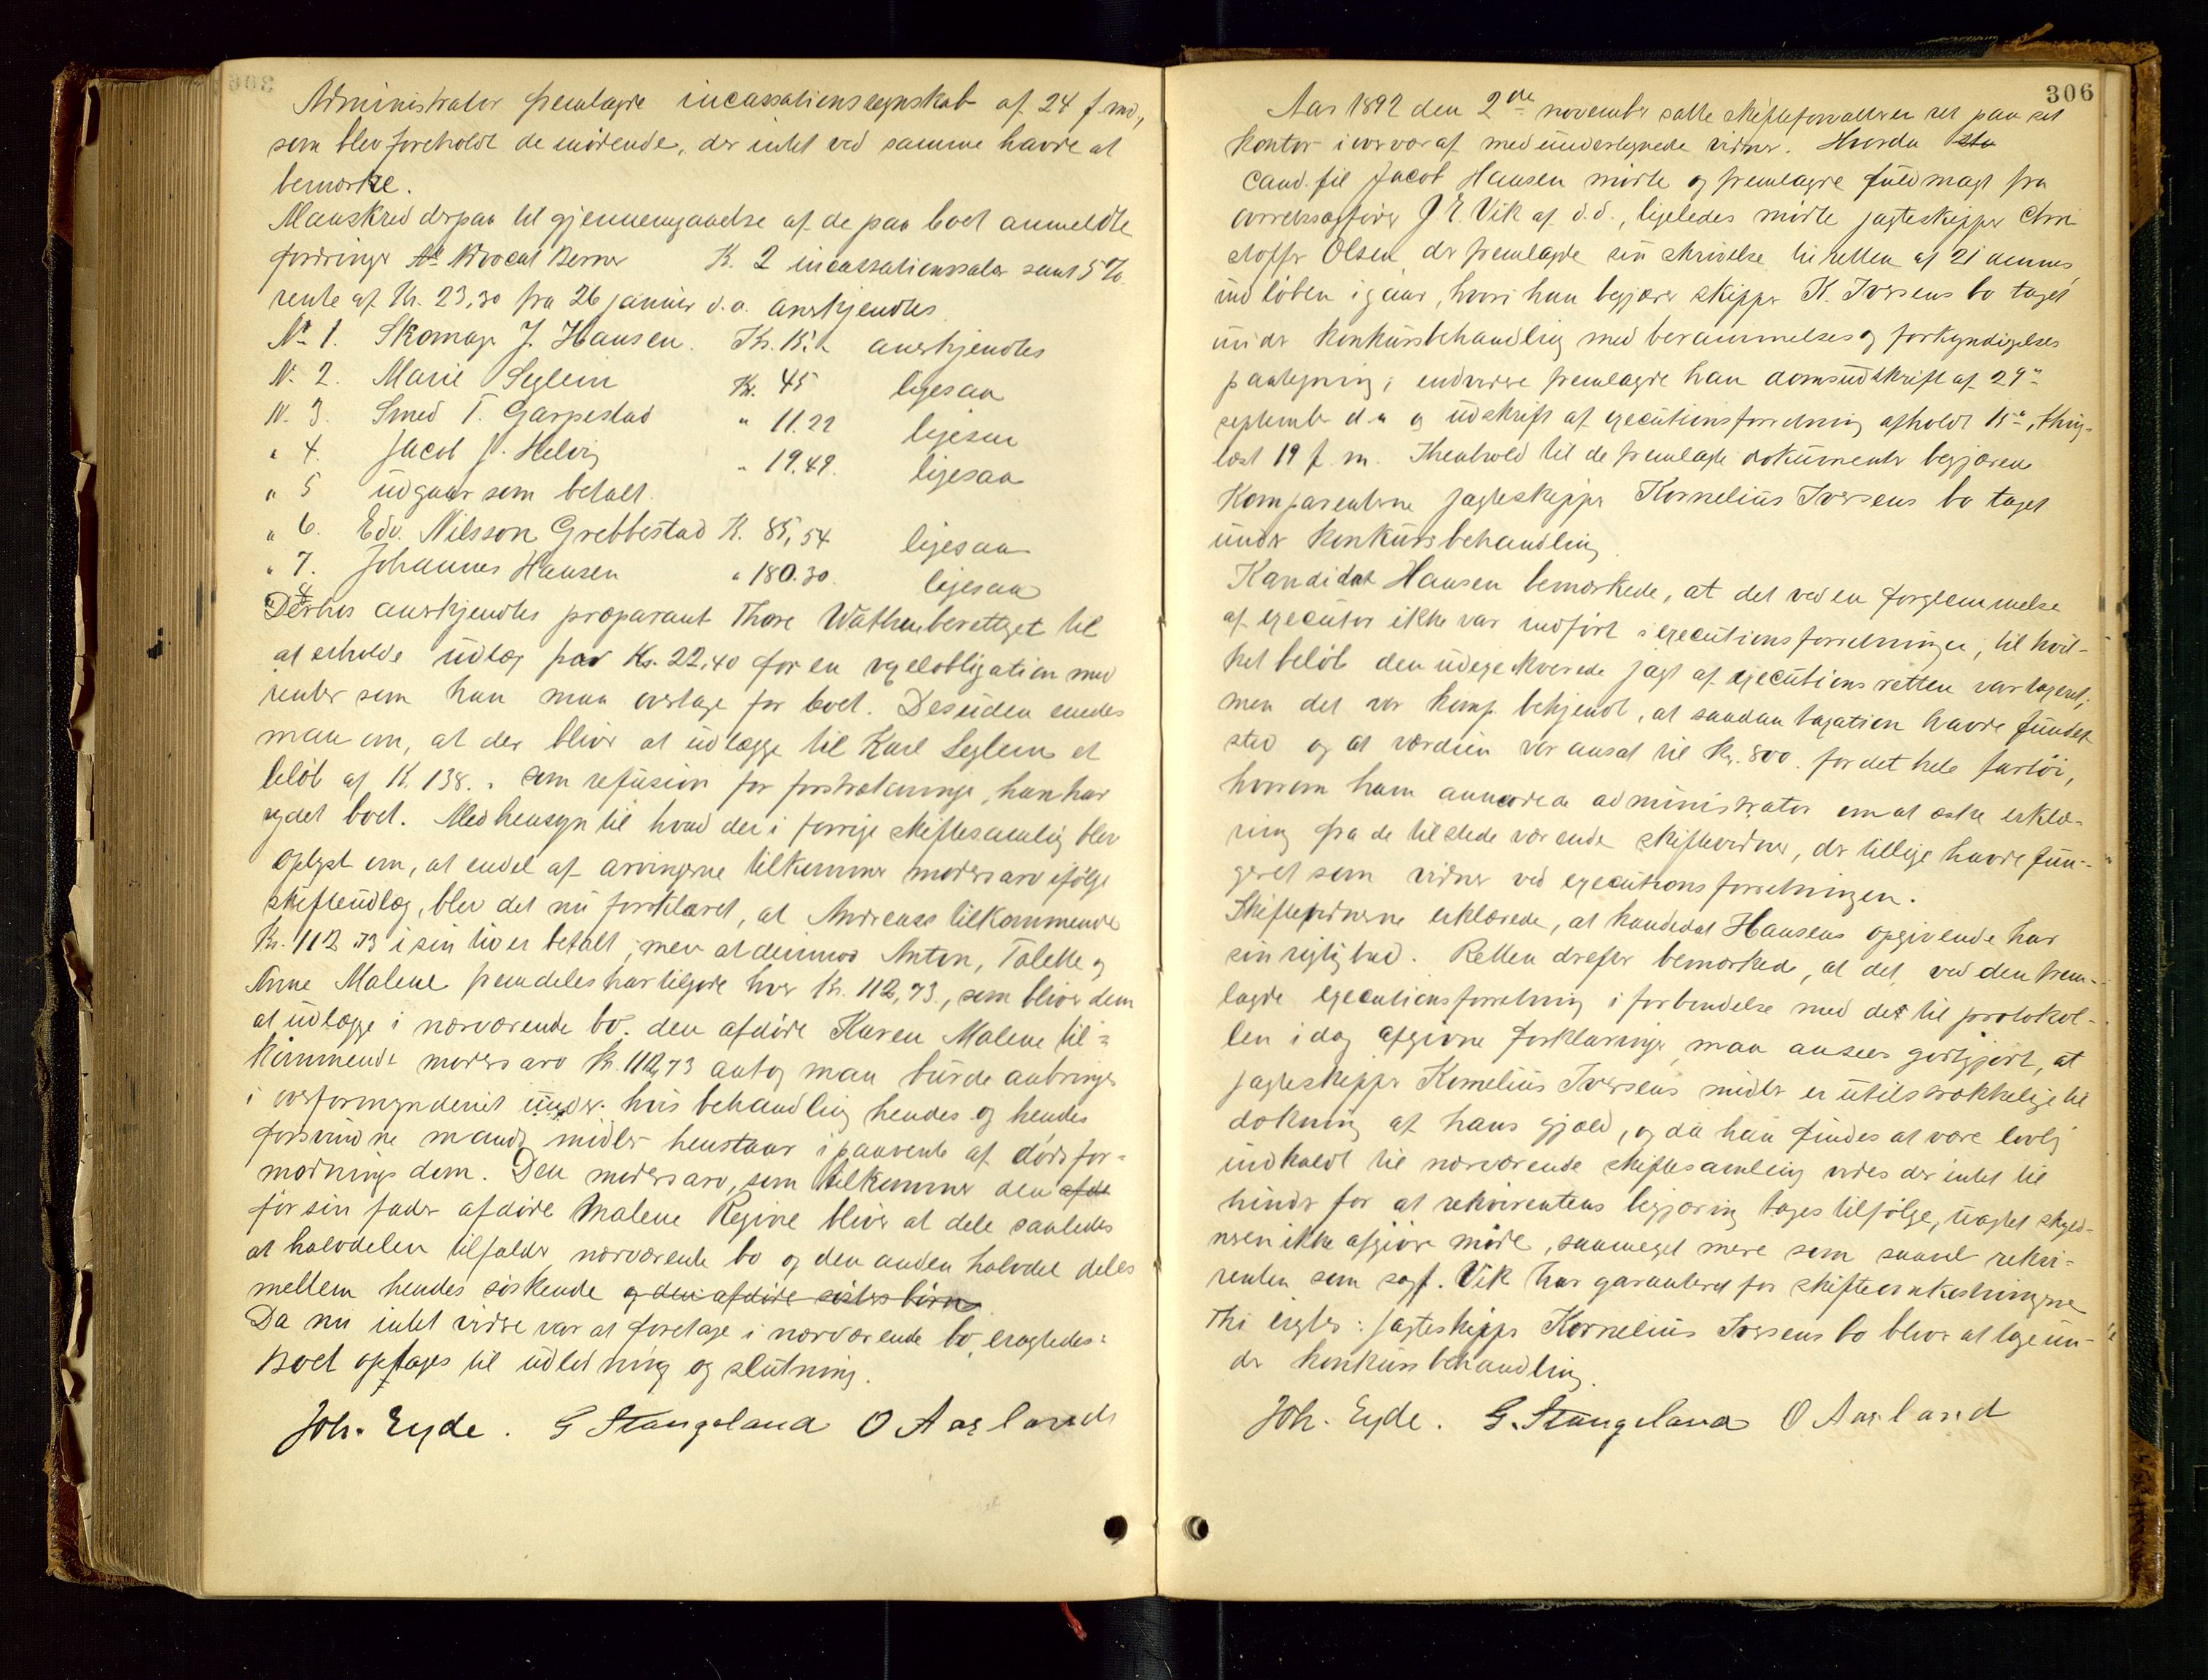 Administrator fremlagde incassationsregnskab af 24 f. md.,
som blev foreholdt de mödende, der intet ved samme havde at
bemærke.
Man skred derpaa til gjennemgaaelse af de paa boet anmeldte
fordringer Advocat Berner K. 2 incassationssalær samt 5%
rente af Kr. 23,30 fra 26 januar d.a. anerkjendtes
No 1. Skomager J. Hansen. Kr. 15. anerkjendtes
N. 2. Marie Seglem Kr. 45 ligesaa
N. 3. Smed T. Garpestad " 11.22 ligesaa
" 4. Jacob J. Helvig " 19.49. ligesaa
" 5 udgaar som betalt.
" 6. Edv. Nilsson Grebbestad K. 85,54 ligesaa
" 7. Johannes Hansen " 180.30. ligesaa
Derhos anerkjendtes præparant Thore Wathne berettiget til
at erholde udlæg paa Kr. 22,40 for en obligation med
renter som han maa overtage for boet. Desuden enedes
man om, at der bliver at udlægge til Karl Seglem et
belöb af K. 138. " som refusion for forstrækninger, han har
ydet boet. Med hensyn til hvad der i forrige skiftesamling blev
oplyst om, at endel af arvingerne tilkommer mödrearv ifölge
skifteudlæg, blev det nu forklaret, at Andreas's tilkommende
Kr. 112 73 i sin tid er betalt, men at derimod Anton, Tolette og
Anne Malene fremdeles har tilgode hver Kr. 112,73, som bliver dem
at udlægge i nærværende bo. den afdöde Karen Malene til-
kommende mödrearv Kr. 112,73 antog man burde anbringes
i overformynderiet under hvis behandling hendes og hendes
forsvundne mands midler henstaar i paavente af dödsfor-
modnings dom. Den mödrearv, som tilkommer den afdö
för sin fader afdöde Malene Regine bliver at dele saaledes
at halvdelen tilfalder nærværende bo og den anden halvdel deles
mellem hendes söskende og den afdöde sösters börn
Da nu intet videre var at foretage i nærværende bo, eragtedes:
Boet optages til udlodning og slutning.
Joh. Eyde. G Stangeland O Aarland
306
Aar 1892 den 2den november satte skifteforvalteren ret paa sit
kontor i overvær af medundertegnede vidner. Hvorda
Cand. fil Jacob Hansen mödte og fremlagde fuldmagt fra
overretssagförer J. E. Vik af d.d., ligeledes mödte jagteskipper Chri
stoffer Olsen, der fremlagde sin skrivelse til retten af 21 dennes
indlöben igaar, hvori han begjærer skipper K. Iversens bo taget
under konkursbehandling med berammelses og forkyndigelses
paategning; endvidere fremlagde han domsudskrift af 29de
september d.a og udskrift af executionsforretning afholdt 15de, thing-
læst 19 f. m. I henhold til de fremlagte dokumenter begjærer
Komparenterne jagteskipper Kornelius Iversens bo taget
under konkursbehandling.
Kandidat Hansen bemærkede, at det ved en forglemmelse
af executor ikke var indfört i executionsforretningen, til hvil-
ket belöb den udeqekverede jagt af executionsretten var taxeret,
men det var komp. bekjendt, at saadan taxation havde fundet
sted og at værdien var ansat til Kr. 800. for det hele fartöi,
hvorom ham anmodede administrator om at æske erklæ-
ring fra de tilstede værende skiftevidner, der tillige havde fun-
geret som vidner ved executionsforretningen.
Skiftevidnerne erklærede, at kandidat Hansens opgivende har
sin rigtighed. Retten derefter bemærkede, at det, ved den frem-
lagde executionsforretning i forbindelse med det til protokol-
len idag afgivne forklaringer, maa ansees godtgjort, at
jagteskipper Kornelius Iversens midler er utilstrækkelige til
dækning af hans gjæld, og da han findes at være lovlig
indkaldt til nærværende skiftesamling vides der intet til
hinder for at rekvirentens begjæring tages tilfölge, uagtet skyld-
neren ikke afgiver möde, saameget mere som saavel rekvi-
renten som sagf. Vik har garanteret for skifteomkostningerne
Thi eragtes: jagteskipper Kornelius Iversens bo bliver at tage un-
der konkursbehandling.
Joh. Eyde. G. Stangeland O Aarland